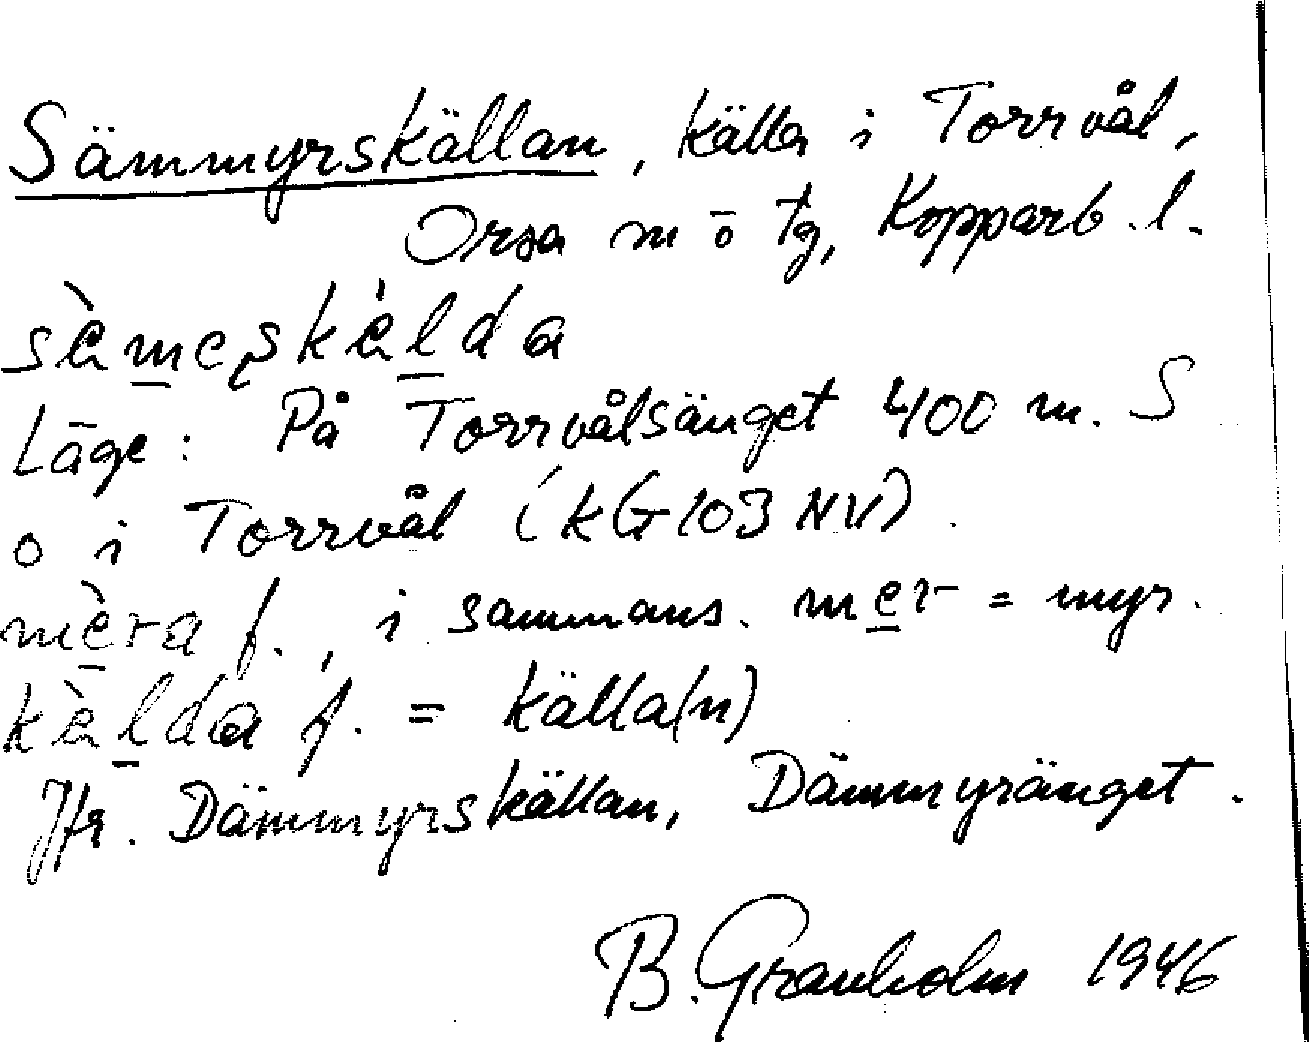 Sämmyrskällan, källa i Torrvål,
Orsa m ō tg, Kopparb. l.
sæ̀meʂkæ̀lda
Läge: På Torrvålsänget 400 m. S
o i Torrvål (kG103 NV).
mèra f., i sammans. mer = myr.
kæ̀lda f. = källa(n)
Jfr. Dämmyrskällan, Dämmyränget.
B. Granholm 1946